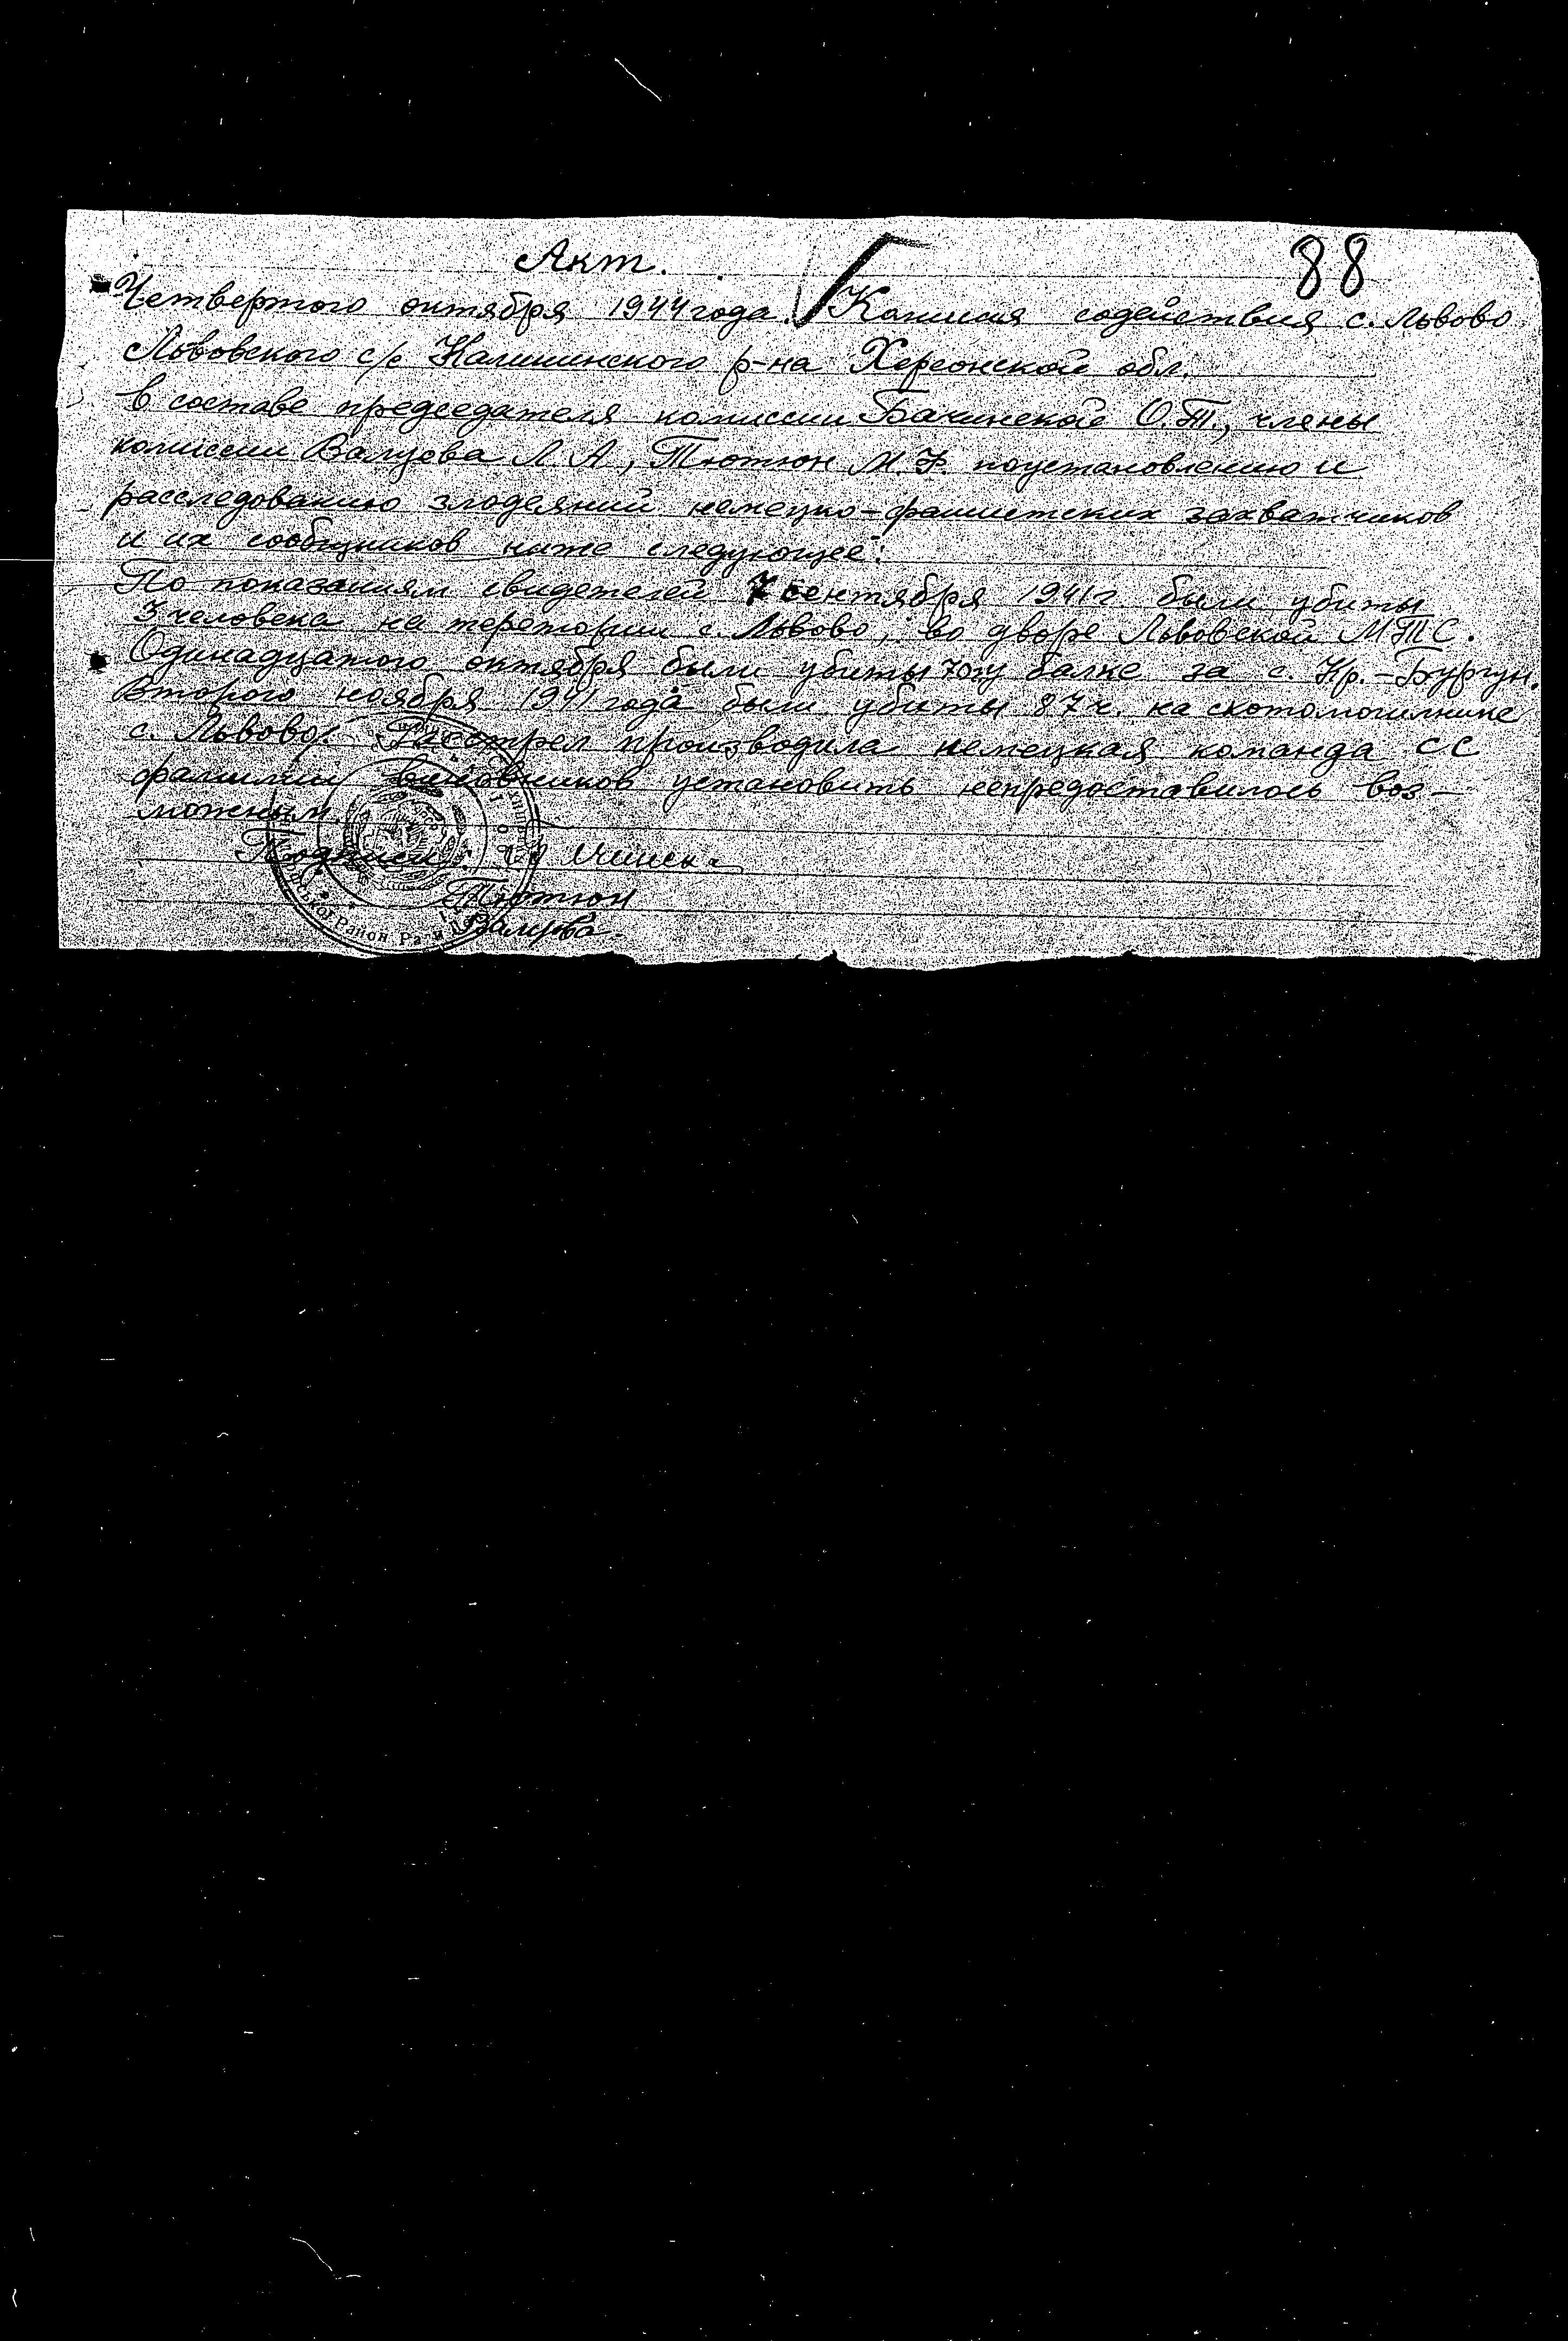 88
Акт.
Четвертого октября 1944 года. Комисия содействия с. Львово
Львовского с/с Калининского р-на Херсонской обл.
в составе председателя комиссии Бачинской О.Т., члены
комиссии Валуева Л. А, Тютюн М. Ф. поустановлению и
расследованию злодеяний немецко-фашистских захватчиков
и их сообщников ниже следующее:
По показаниям свидетелей 7 сентября 1941 г. были убиты
3 человека на теретории с. Львово, во дворе Львовской МТС.
Одинадцатого октября были убиты 70 у балке за с. Кр.-Бургун.
Второго ноября 1941 года были убиты 87 ч. на скотомогильнике
с. Львово. Расстрел производила немецкая команда СС
фамилии виновников установить непредоставилось воз-
можным.
Подписи:
Тютюн
Валуева.
Район Ра